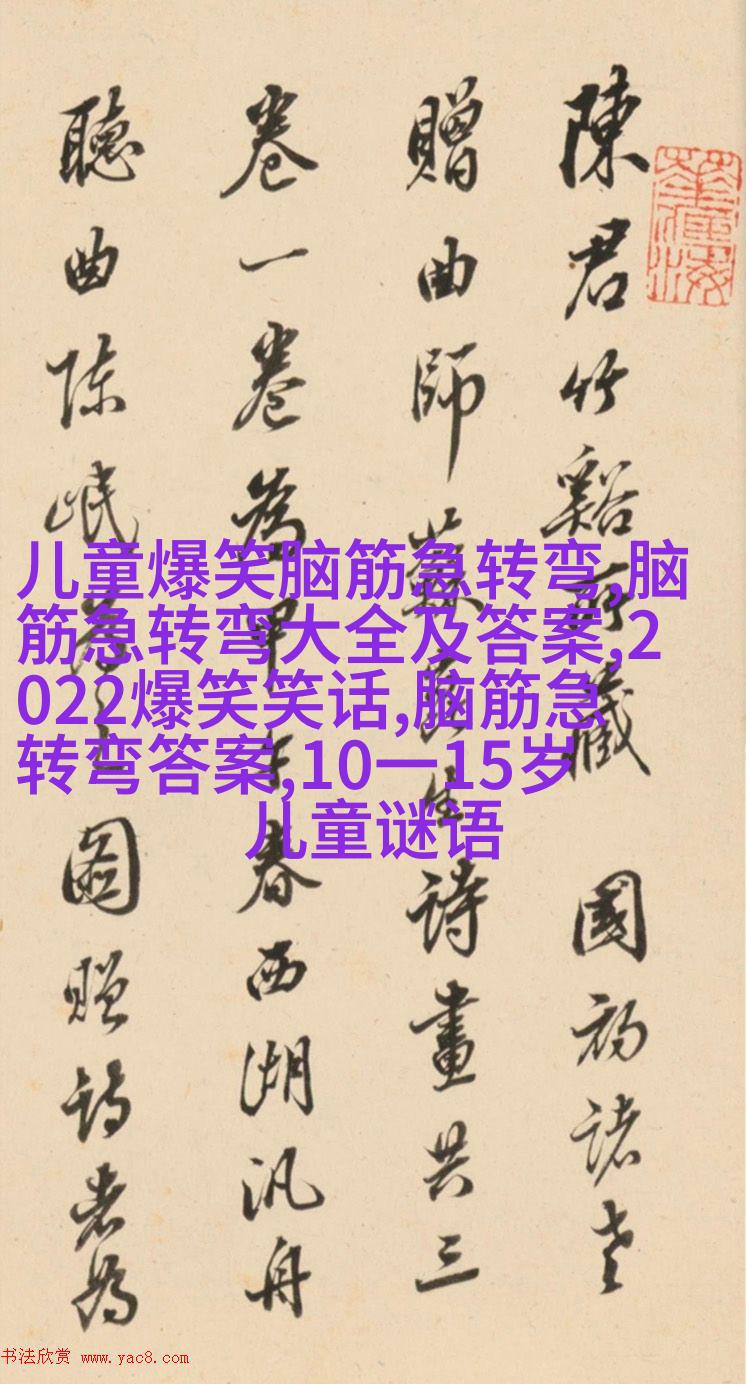 陳君竹谿所藏 國初諸老
贈曲師蘇崑生詩畫共三
卷一卷為甲午春西湖汎舟
聽曲陈岷為之圖贈詩者為
儿童爆笑脑筋急转弯,脑
筋急转弯大全及答案,2
022爆笑笑话,脑筋急
转弯答案,10一15岁
儿童谜语
书法欣赏 www.yac8.com